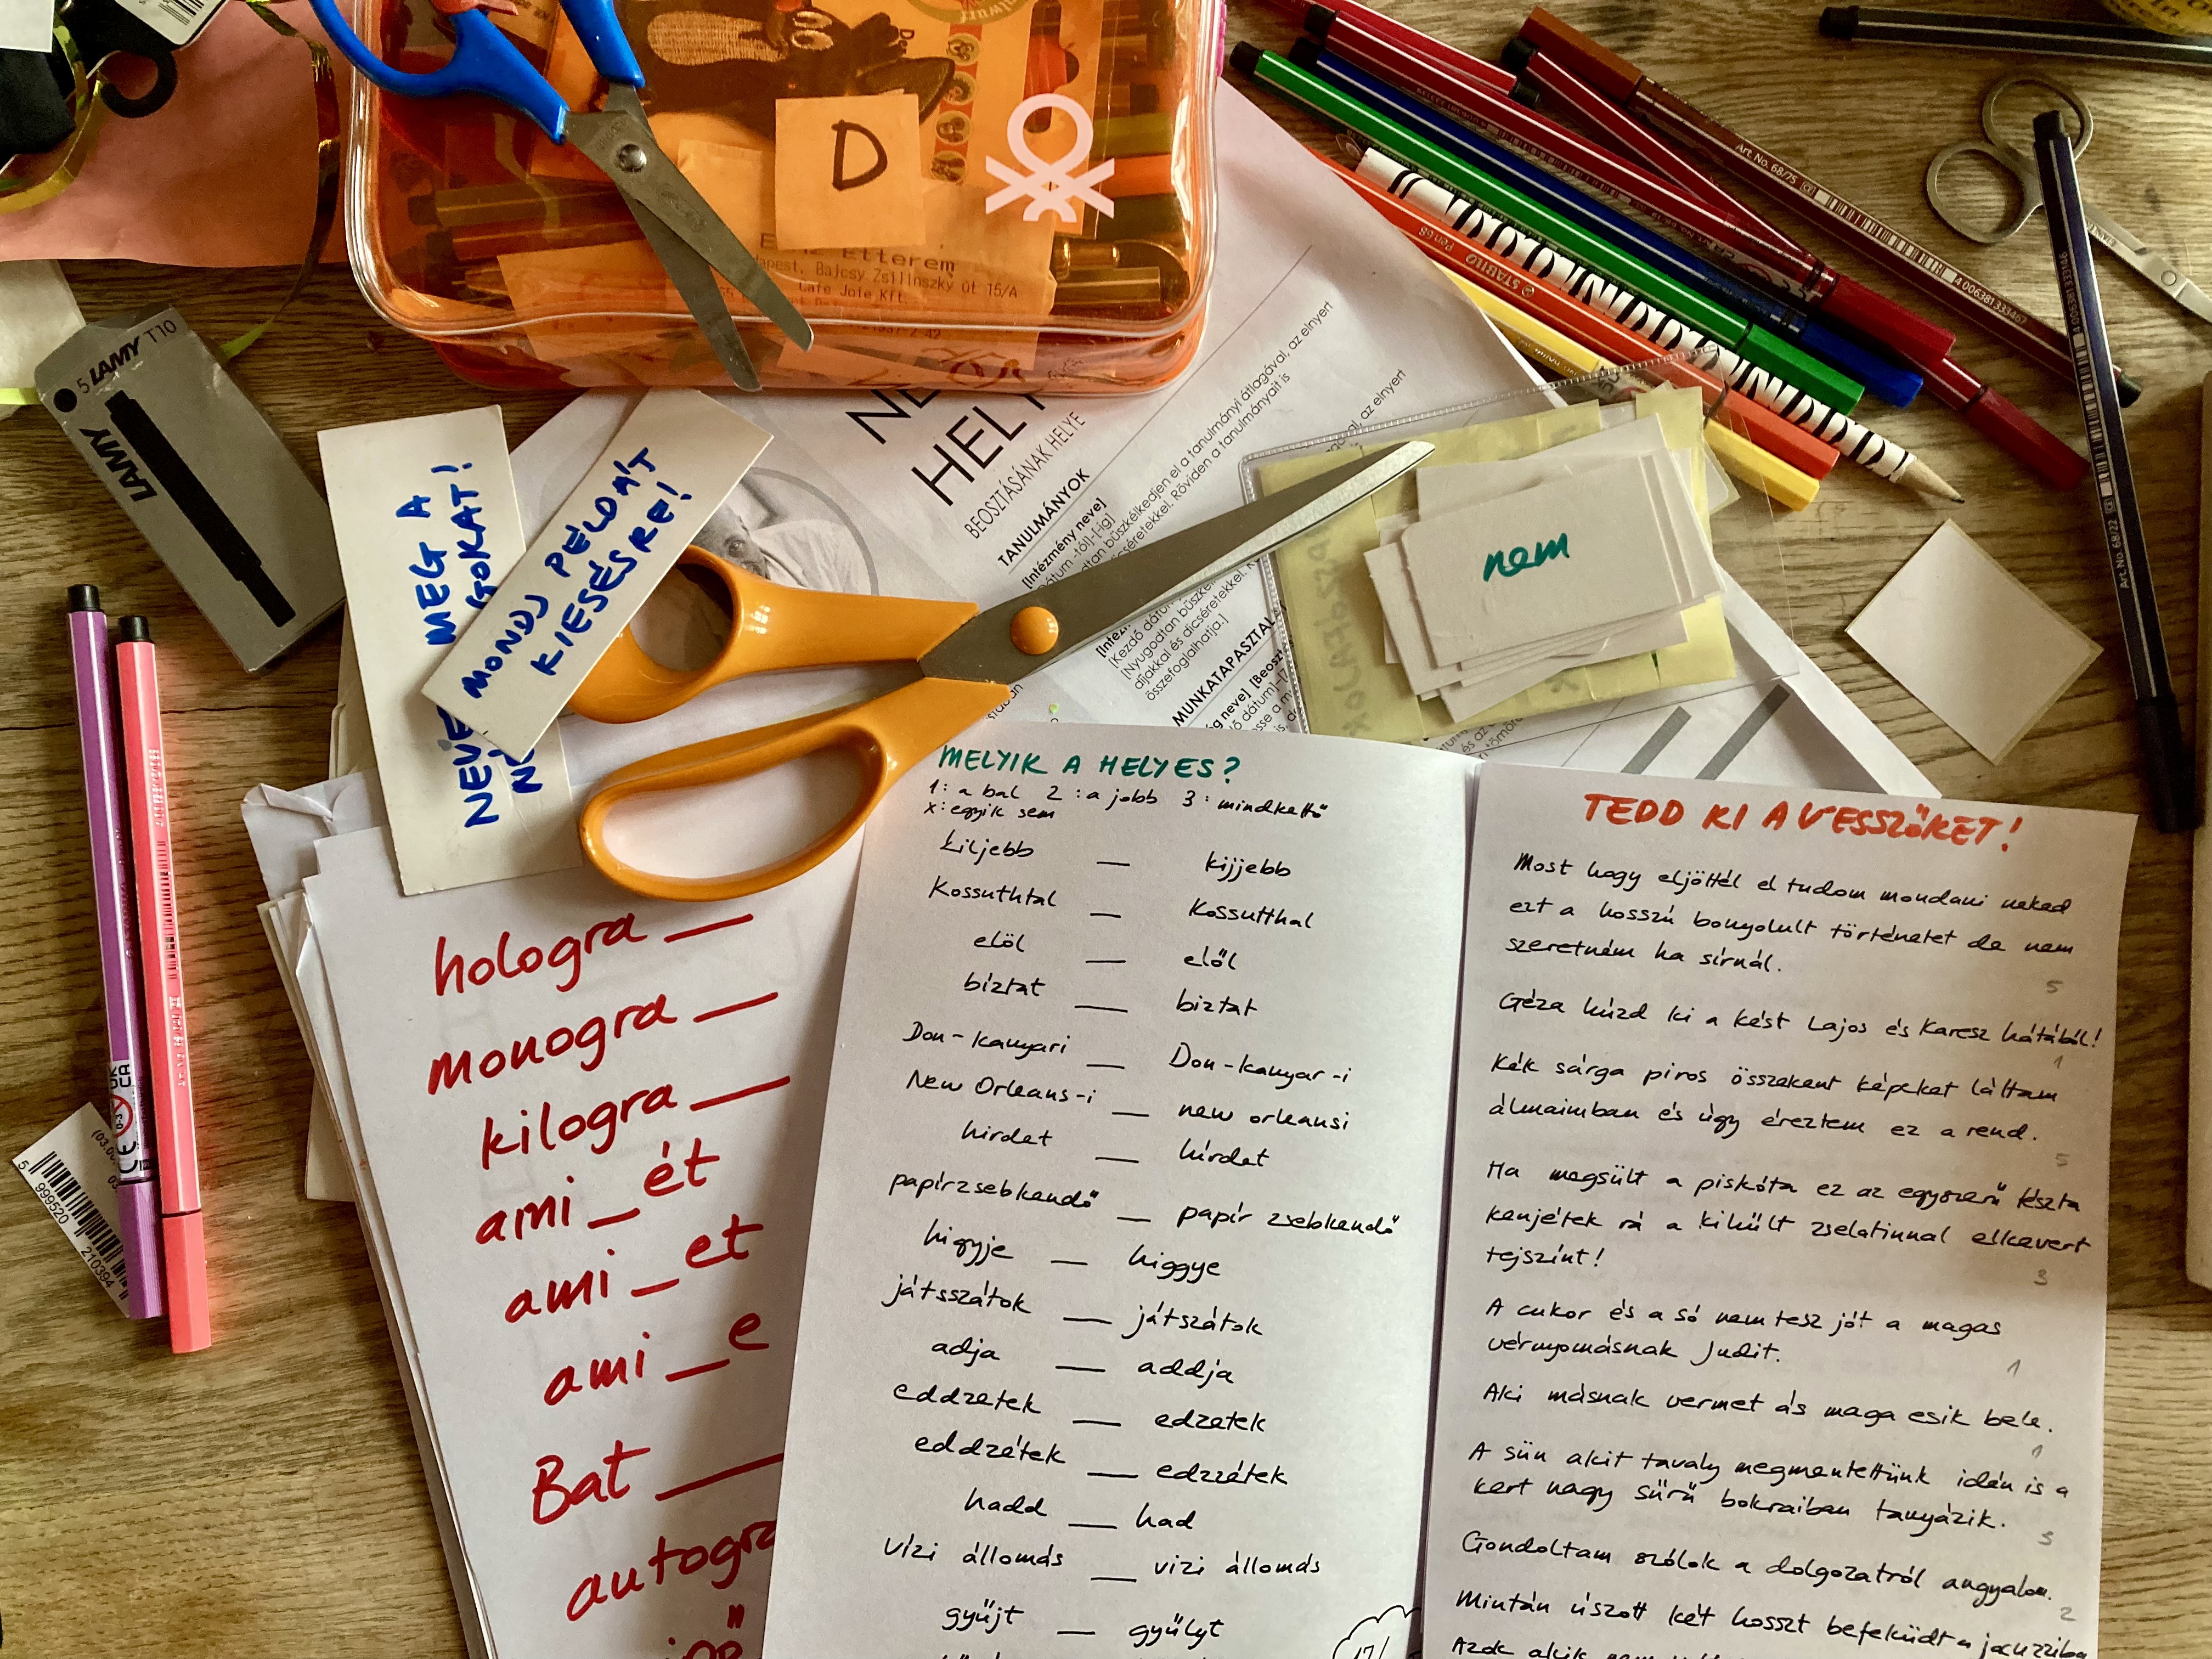 D
Étterem
Budapest, Bajcsy Zsilinszky út 15/A
Cafe Joie Kft.
5 LAMY T10
LAMY
NEVE MEG A
MONDJ PÉLDÁT
KIESÉSRE!
HELY
BEOSZTÁSÁNAK HELYE
TANULMÁNYOK
[Intézmény neve]
MUNKATAPASZTAL
nem
STABILO
Pen 68
Art. No. 68/75
4 006381 333467
Art. No. 68/22
4 006381 333146
5 999520 210394
hologra __
monogra __
kilogra __
ami _ ét
ami _ et
ami _ e
Bat __
autogra
MELYIK A HELYES?
1: a bal 2: a jobb 3: mindkettő
x: egyik sem
kiljebb — kijjebb
Kossuthtal — Kossutthal
elöl — elől
bíztat — biztat
Don-kanyari — Don-kanyar-i
New Orleans-i — new orleansi
hirdet — hírdet
papírzsebkendő — papír zsebkendő
higyje — higgye
játsszátok — játszátok
adja — addja
eddzetek — edzetek
eddzétek — edzzétek
hadd — had
vízi állomás — vizi állomás
gyűjt — gyűlyt
17/
TEDD KI A VESSZŐKET!
Most hogy eljöttél el tudom mondani neked
ezt a hosszú bonyolult történetet de nem
szeretném ha sírnál.
5
Géza húzd ki a kést Lajos és Karesz hátából!
1
Kék sárga piros összekent képeket láttam
álmaimban és úgy éreztem ez a rend.
5
Ha megsült a piskóta ez az egyszerű tészta
kenjétek rá a kihűlt zselatinnal elkevert
tejszínt!
3
A cukor és a só nem tesz jót a magas
vérnyomásnak Judit.
1
Aki másnak vermet ás maga esik bele.
1
A sün akit tavaly megmentettünk idén is a
kert nagy sűrű bokraiban tanyázik.
3
Gondoltam szólok a dolgozatról angyalom.
2
Miután úszott két hosszt befeküdt a jacuzziba
Azok akik nem